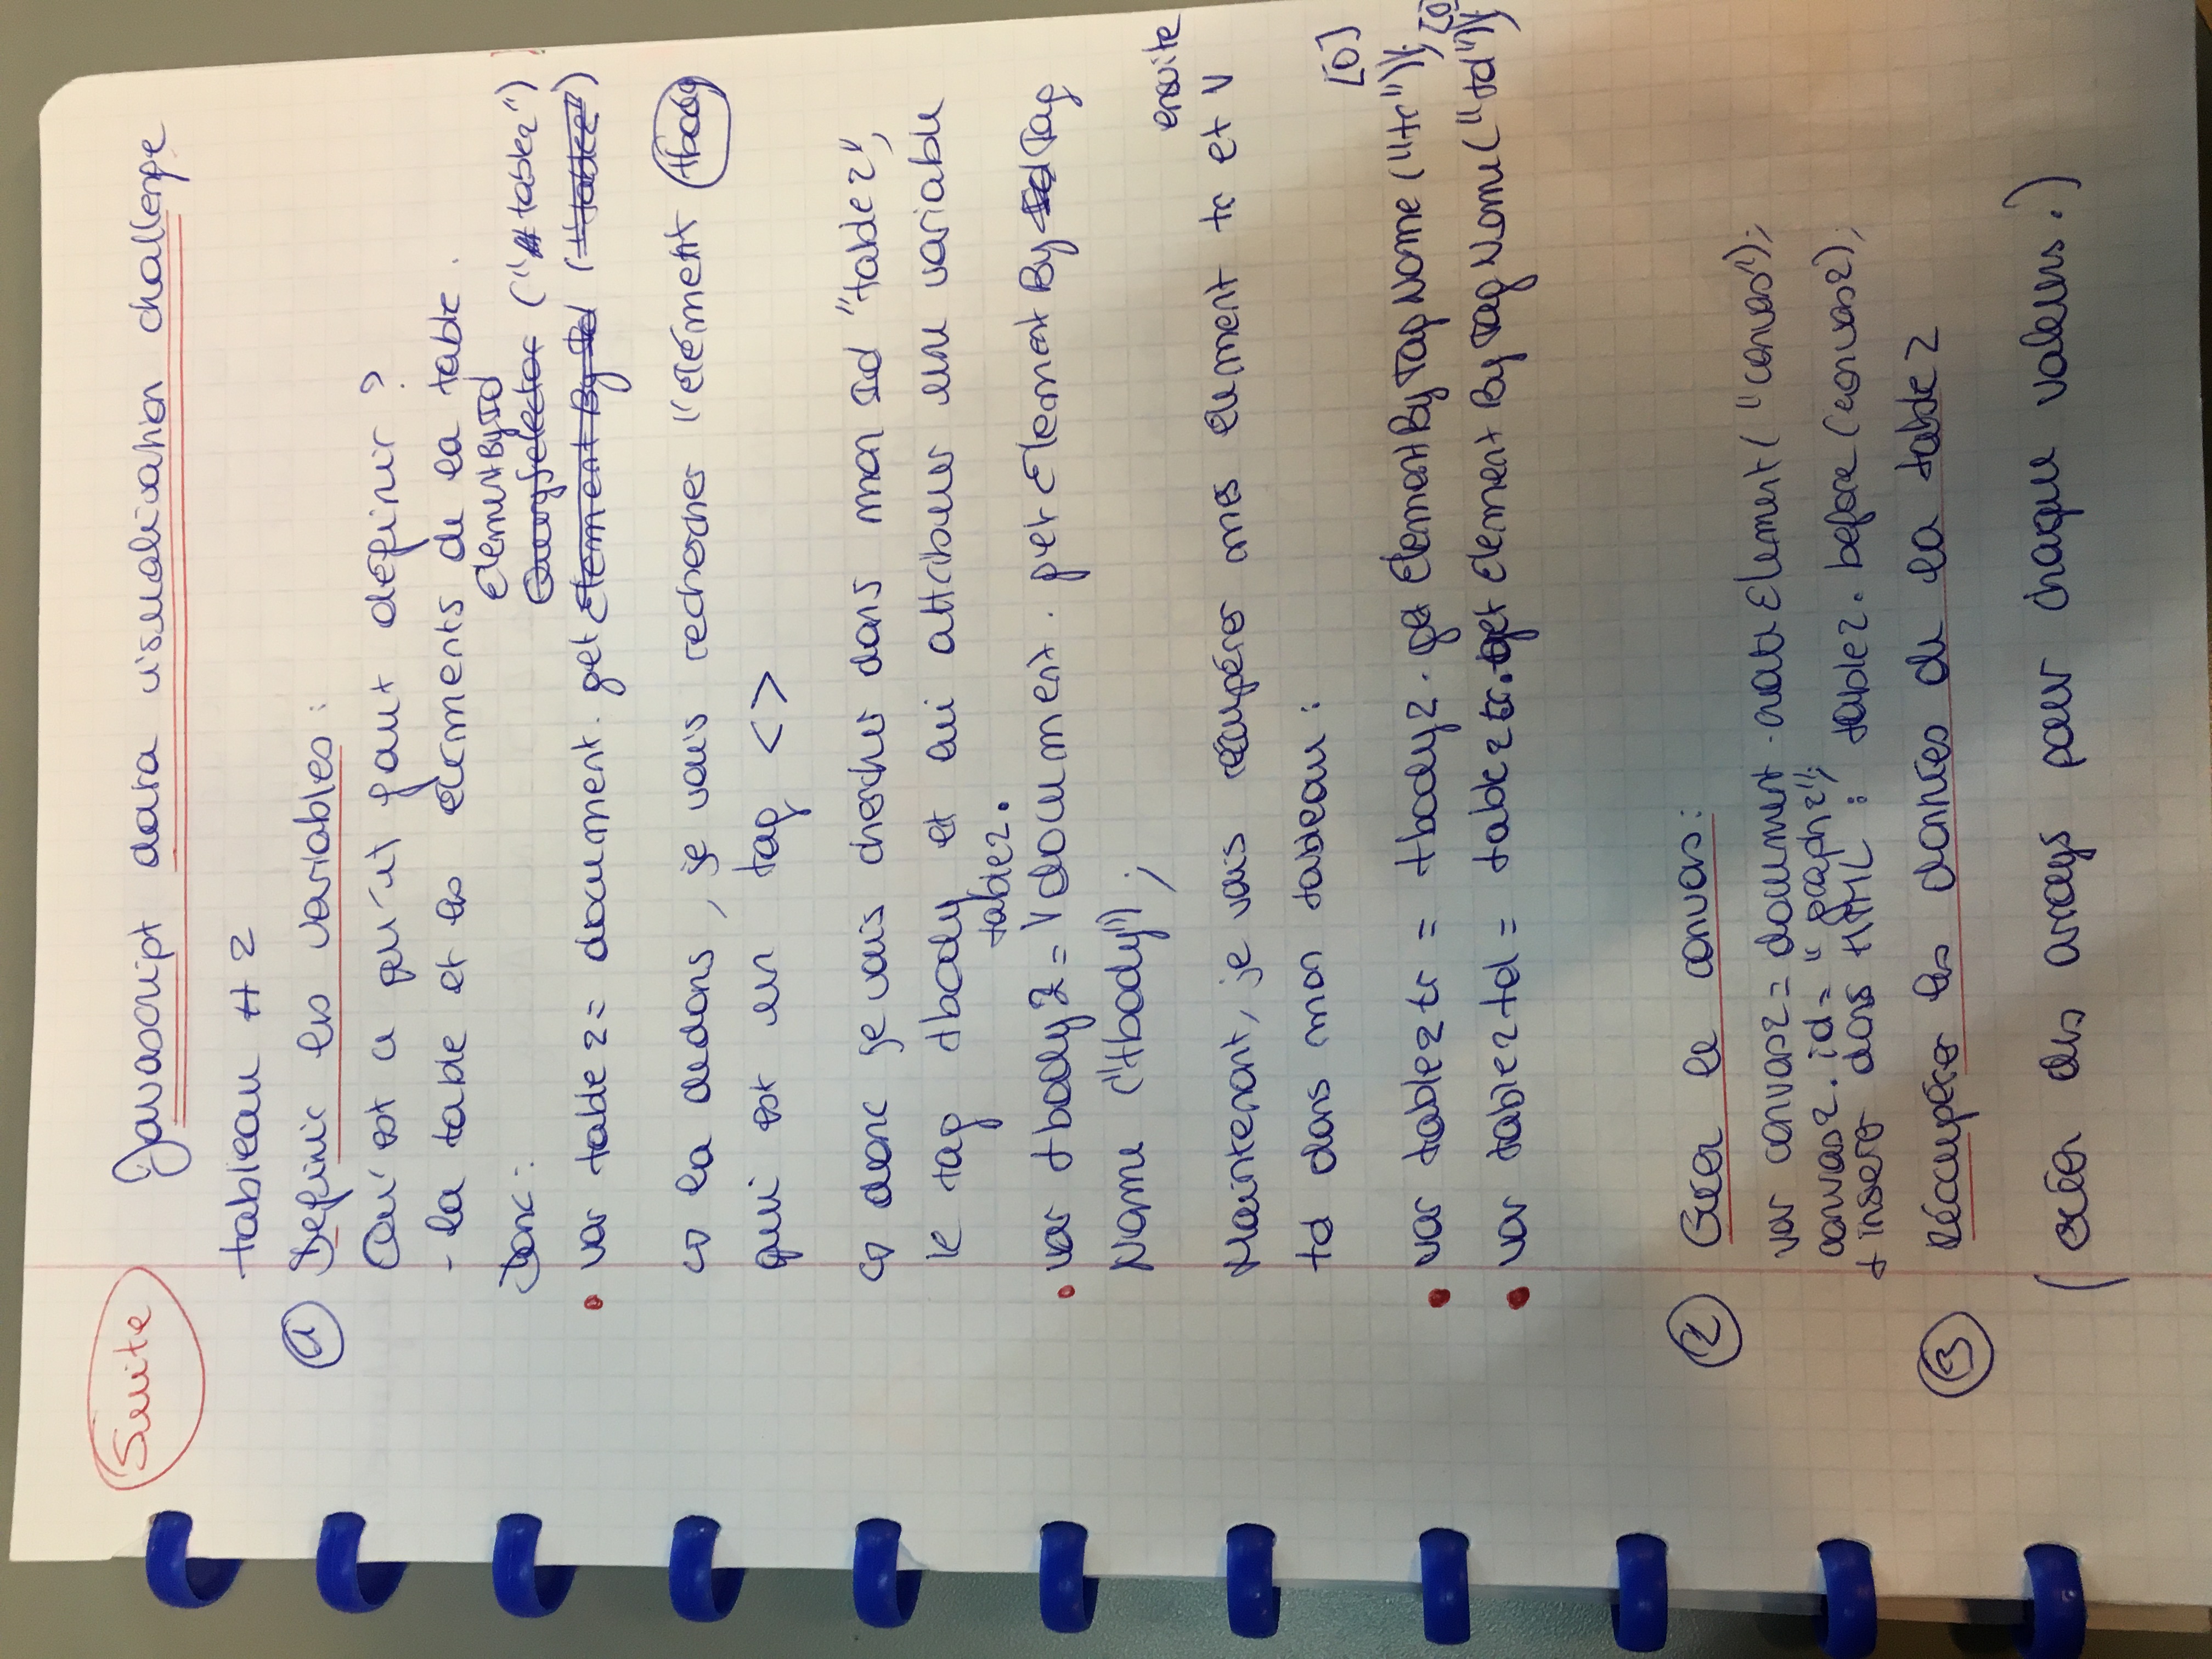 Suite
Javascript data visualisation challenge
tableau #2
1 Definir les variables :
Qu'est ce qu'il faut définir ?
- la table et les éléments de la table.
Donc :
ElementById
QuerySelector ("#table2")
var table2 = document. get Element By Id ("table2")
↳ la dedans, je vais rechercher l'élément tbody
qui est un tag < >
↳ donc je vais chercher dans mon Id "table2",
le tag tbody et lui attribuer une variable
table2.
var tbody2 = V document. get Element By Id Tag
Name ("tbody") ;
ensuite
Maintenant, je vais récupérer mes élément tr et V
td dans mon tableau :
[0]
var table2tr = tbody2. get ElementByTagName ("tr");
[0]
var table2td = table2tr.get Element By Tag Name ("td");
2 Créer le canvas :
var canvas2 = document.createElement ("canvas");
canvas2. id = "graph2";
+ insero dans HTML : table2. before (canvas2);
3 Récupérer les données de la table 2
(créer des arrays pour chaque valeurs.)